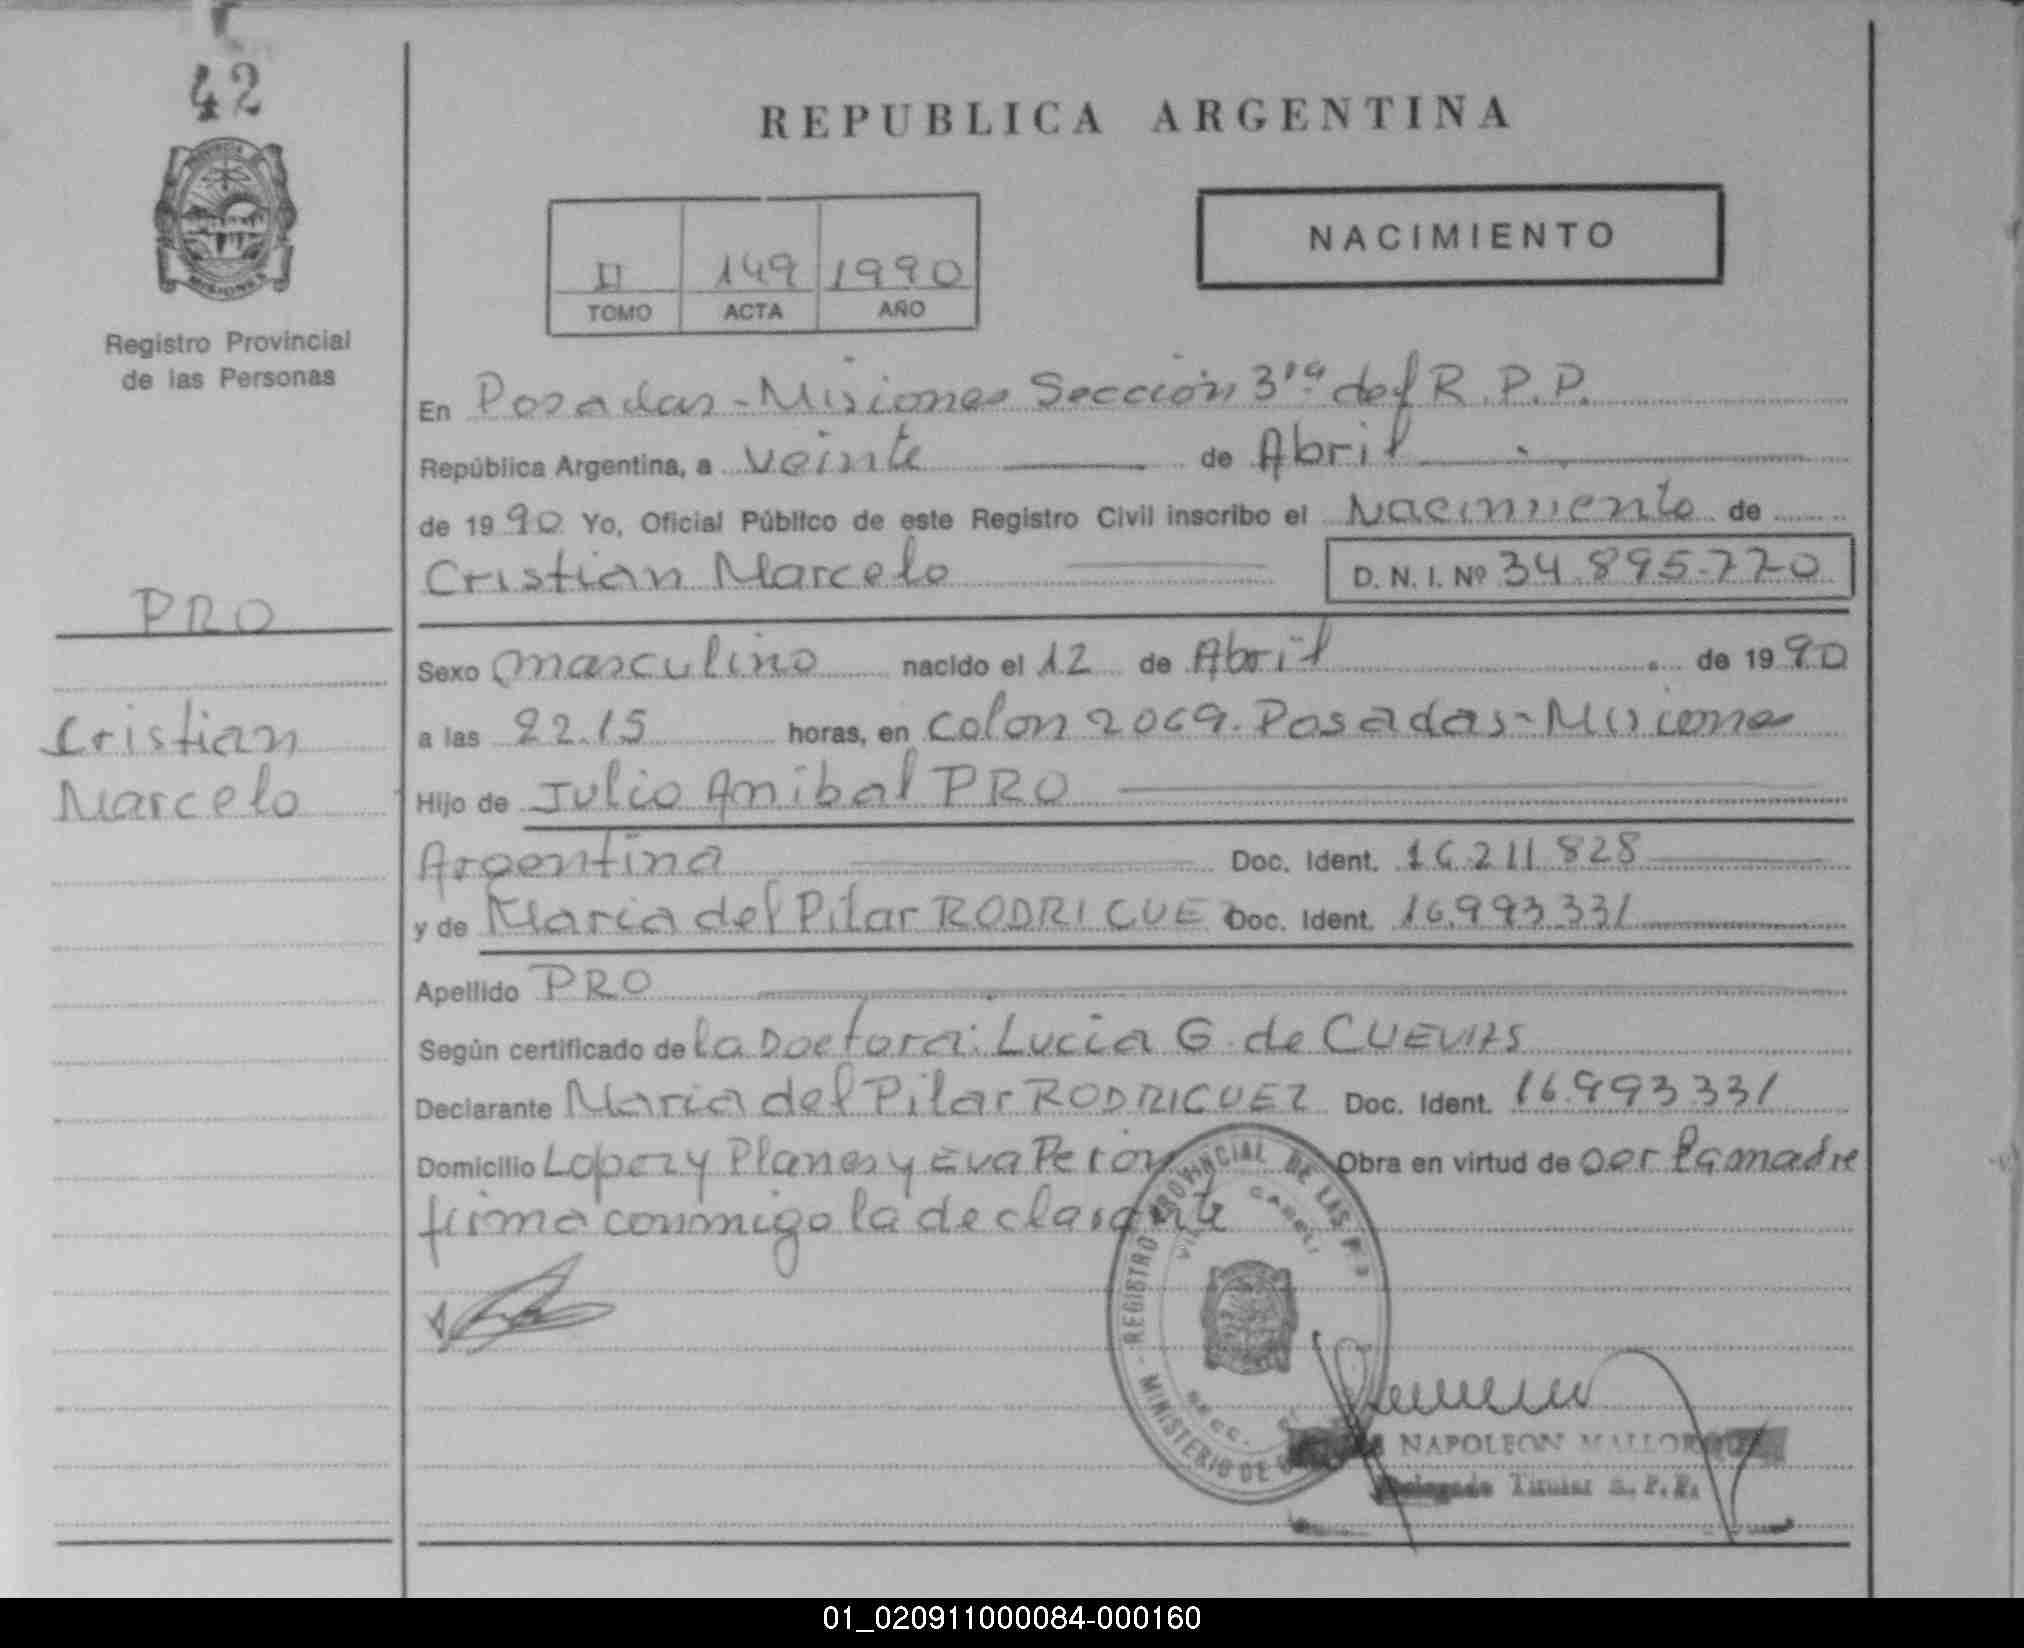 42
PROVINCIA
MISIONES
Registro Provincial
de las Personas
PRO
Cristian
Marcelo
REPUBLICA ARGENTINA
II 149 1990
TOMO ACTA AÑO
NACIMIENTO
En Posadas-Misiones Sección 3ra del R.P.P.
República Argentina, a veinte de Abril
de 1990 Yo, Oficial Público de este Registro Civil inscribo el Nacimiento de
Cristian Marcelo D. N. I. Nº 34.895.770
Sexo masculino nacido el 12 de Abril de 1990
a las 22.15 horas, en Colon 2069. Posadas-Misiones
Hijo de Julio Anibal PRO
Argentina Doc. Ident. 16.211.828
y de Maria del Pilar RODRIGUEZ Doc. Ident. 16.993.331
Apellido PRO
Según certificado de la Doctora: Lucia G. de CUEVAS
Declarante Maria del Pilar RODRIGUEZ Doc. Ident. 16.993.331
Domicilio Lopez y Planes y Eva Peron Obra en virtud de ser la madre
firma conmigo la declarante
REGISTRO PROVINCIAL DE LAS P.
MINISTERIO DE
SECC.
NAPOLEON
Delegado Titular R.P.P.
01_020911000084-000160